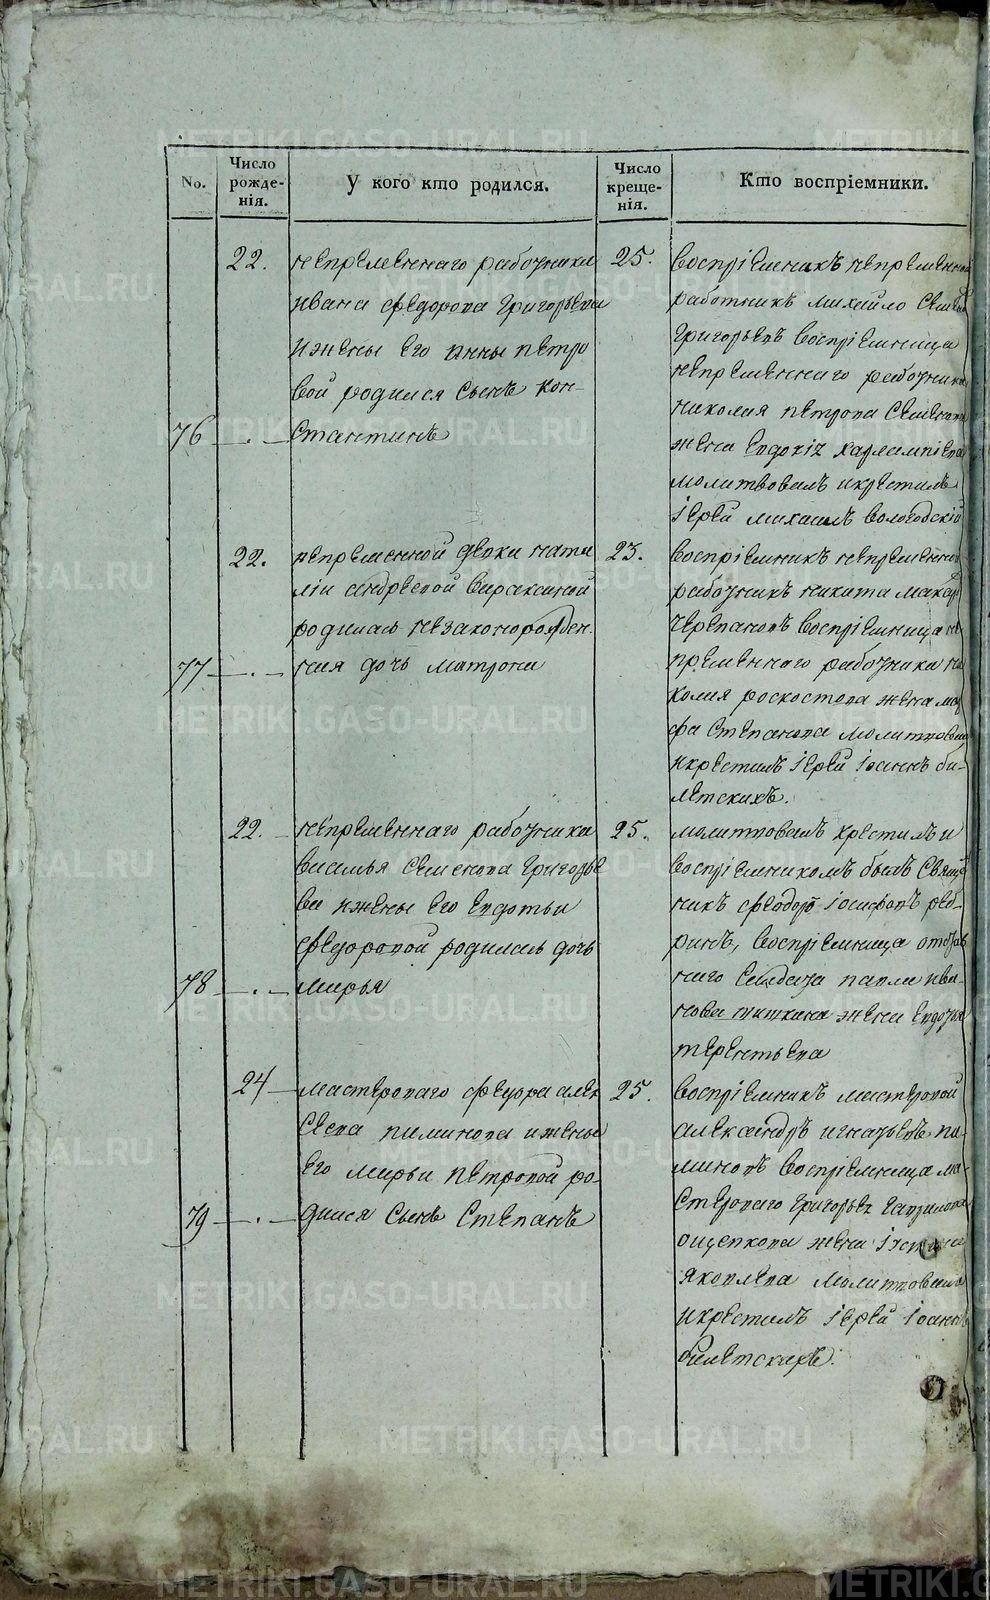 No.
Число рожде-
нія.
У кого кто родился.
Число креще-
нія.
Кто воспріемники.
22.
непременнаго работника
ивана федорова григорьева
и жены его анны петро
вой родился сынъ кон-
76 стантинъ
25.
воспріемникъ непременной
работникъ михайло
григорьевъ воспріемница
непременнаго работника
николая петрова семенова
жена харлампіева
молитвовалъ и крестилъ
іерей михаилъ вологодскій
22.
непременной девки ната
ліи андреевой
родилась незаконорожден.
77 ная дочь матрона
23.
воспріемникъ непременной
работникъ никита макар
черепановъ воспріемница не
пременнаго работника ни
колая жена мар
фа степанова молитвовалъ
и крестилъ іерей іоаннъ би-
летскихъ.
22.
непременнаго работника
василья семенова григорье
ва и жены его евдотьи
федоровой родилась дочь
78 марья
25.
молитвовалъ крестилъ и
воспріемникомъ былъ свяще
никъ феодоръ іосифовъ
воспріемница
наго павла ива-
нова жена
терентьева
24
мастероваго федора алек
сеева пиминова и жены
его марьи петровой ро-
79 дился сынъ степанъ
25.
воспріемникъ мастеровой
александръ игнатьевъ пи-
миновъ воспріемница ма-
стероваго григорья гаврилова
ощепкова жена
яковлева молитвовалъ
и крестилъ іерей іоаннъ
билетскихъ.
METRIKI.GASO-URAL.RU